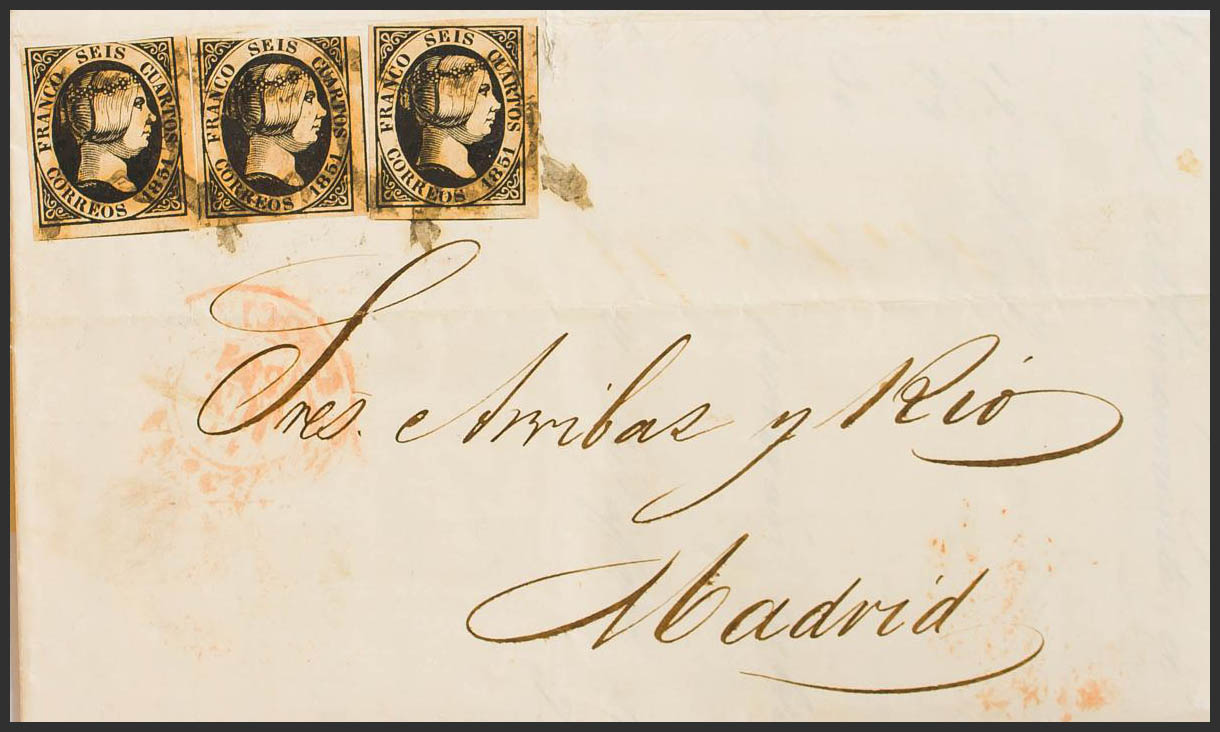 FRANCO SEIS CUARTOS
CORREOS 1851
FRANCO SEIS CUARTOS
CORREOS 1851
FRANCO SEIS CUARTOS
CORREOS 1851
Sres. Arribas y Rio
Madrid